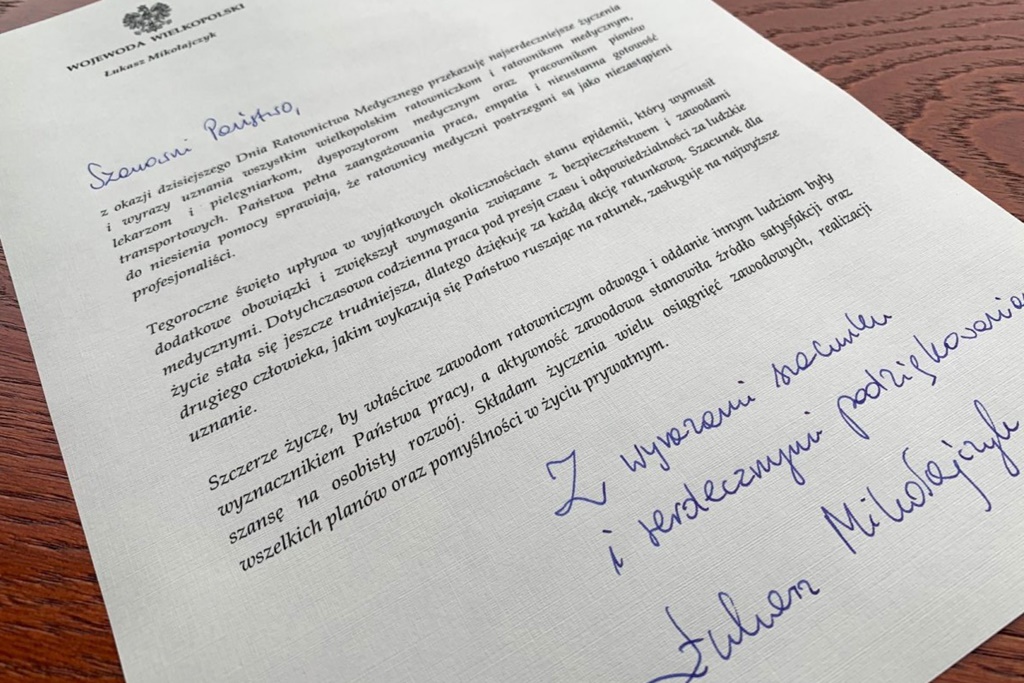 WOJEWODA WIELKOPOLSKI
Łukasz Mikołajczyk
Szanowni Państwo,
z okazji dzisiejszego Dnia Ratownictwa Medycznego przekazuję najserdeczniejsze życzenia
i wyrazy uznania wszystkim wielkopolskim ratowniczkom i ratownikom medycznym,
lekarzom i pielęgniarkom, dyspozytorom medycznym oraz pracownikom pionów
transportowych. Państwa pełna zaangażowania praca, empatia i nieustanna gotowość
do niesienia pomocy sprawiają, że ratownicy medyczni postrzegani są jako niezastąpieni
profesjonaliści.
Tegoroczne święto upływa w wyjątkowych okolicznościach stanu epidemii, który wymusił
dodatkowe obowiązki i zwiększył wymagania związane z bezpieczeństwem i zawodami
medycznymi. Dotychczasowa codzienna praca pod presją czasu i odpowiedzialności za ludzkie
życie stała się jeszcze trudniejsza, dlatego dziękuję za każdą akcję ratunkową. Szacunek dla
drugiego człowieka, jakim wykazują się Państwo ruszając na ratunek, zasługuje na najwyższe
uznanie.
Szczerze życzę, by właściwe zawodom ratowniczym odwaga i oddanie innym ludziom były
wyznacznikiem Państwa pracy, a aktywność zawodowa stanowiła źródło satysfakcji oraz
szansę na osobisty rozwój. Składam życzenia wielu osiągnięć zawodowych, realizacji
wszelkich planów oraz pomyślności w życiu prywatnym.
Z wyrazami szacunku
i serdecznymi podziękowania
Łukasz Mikołajczyk